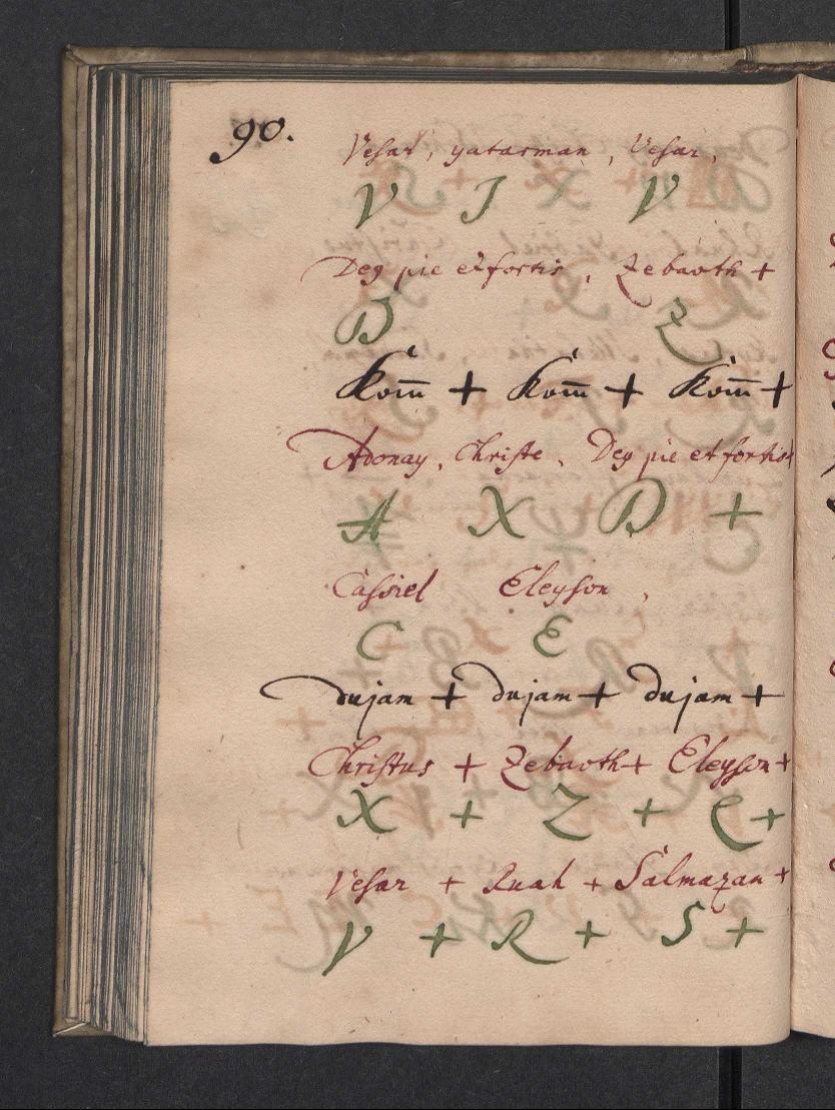 90.
Vesar, yatarman, Vesar,
V J V
Deg pie et fortis, Zebaoth +
D Z
Kom̄ + Kom̄ + Kom̄ +
Adonay, Christe, Deg pie et fortis
A X D +
Cassiel Eleyson,
C E
dujam + dujam + dujam +
Christus + Zebaoth + Eleyson +
X + Z + E +
Vesar + Ruah + Salmazan +
V + R + S +